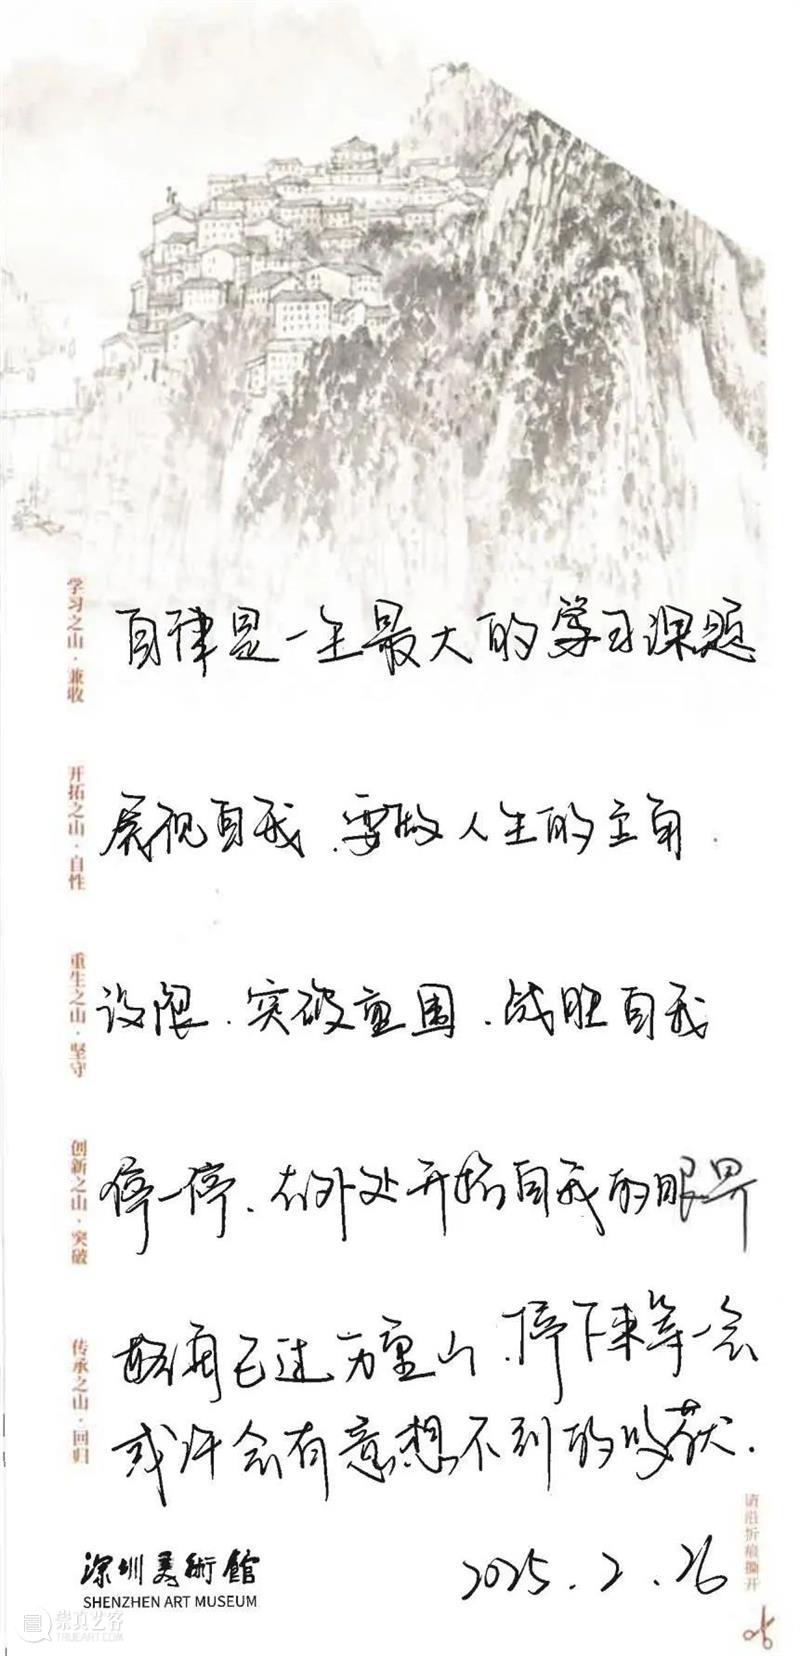 学习之山·兼收
自律是一生最大的学习课题
开拓之山·自性
展现自我.要做人生的主角.
重生之山·坚守
设限.突破重围.战胜自我
创新之山·突破
停一停、在外处开拓自我的眼界
传承之山·回归
已过万重山.停下来等一会
或许会有意想不到的收获.
请沿折痕撕开
深圳美術館
SHENZHEN ART MUSEUM
2025.2.26
崇真艺客
TRUEART.COM